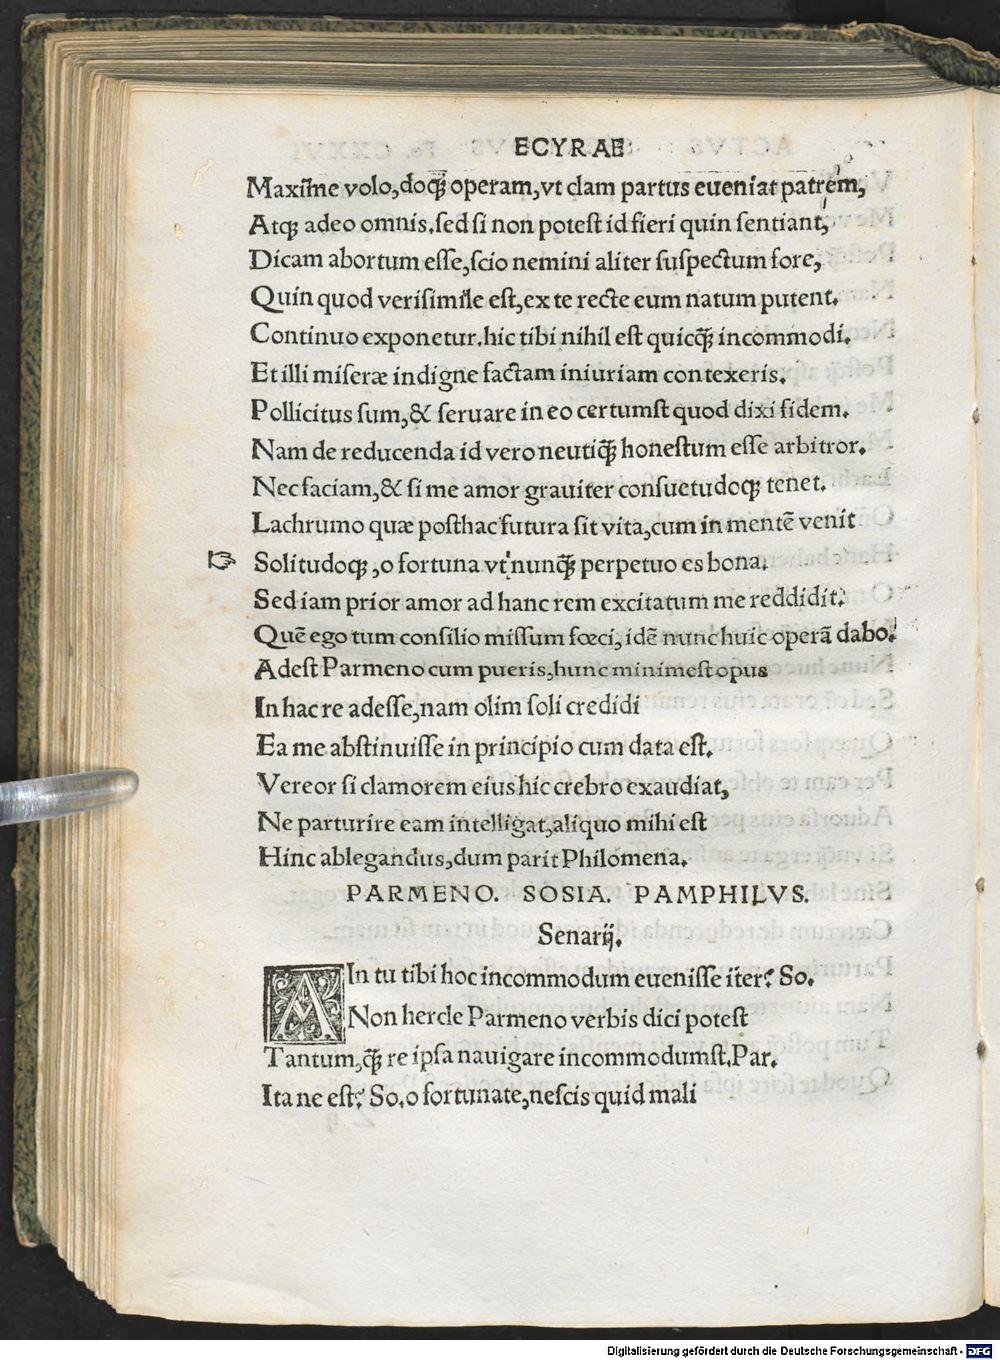 ECYRAE
Maxime volo,doq; operam,vt clam partus eueniat patrem,
Atq; adeo omnis.sed si non potest id fieri quin sentiant,
Dicam abortum esse,scio nemini aliter suspectum fore,
Quin quod verisimile est,ex te recte eum natum putent.
Continuo exponetur.hic tibi nihil est quicq̃ incommodi.
Et illi miseræ indigne factam iniuriam contexeris.
Pollicitus sum,& seruare in eo certumst quod dixi fidem.
Nam de reducenda id vero neutiq̃ honestum esse arbitror.
Nec faciam,& si me amor grauiter consuetudoq; tenet.
Lachrumo quæ posthac futura sit vita,cum in mentē venit
☞ Solitudoq; ,o fortuna vt nunq̃ perpetuo es bona.
Sed iam prior amor ad hanc rem excitatum me reddidit.
Quē ego tum consilio missum fœci,idē nunc huic operā dabo.
Adest Parmeno cum pueris,hunc minimest opus
In hac re adesse,nam olim soli credidi
Ea me abstinuisse in principio cum data est.
Vereor si clamorem eius hic crebro exaudiat,
Ne parturire eam intelligat,aliquo mihi est
Hinc ablegandus,dum parit Philomena.
PARMENO. SOSIA. PAMPHILVS.
Senarij.
AIn tu tibi hoc incommodum euenisse iter? So.
Non hercle Parmeno verbis dici potest
Tantum,q̃ re ipsa nauigare incommodumst.Par.
Ita ne est? So.o fortunate,nescis quid mali
Digitalisierung gefördert durch die Deutsche Forschungsgemeinschaft - DFG